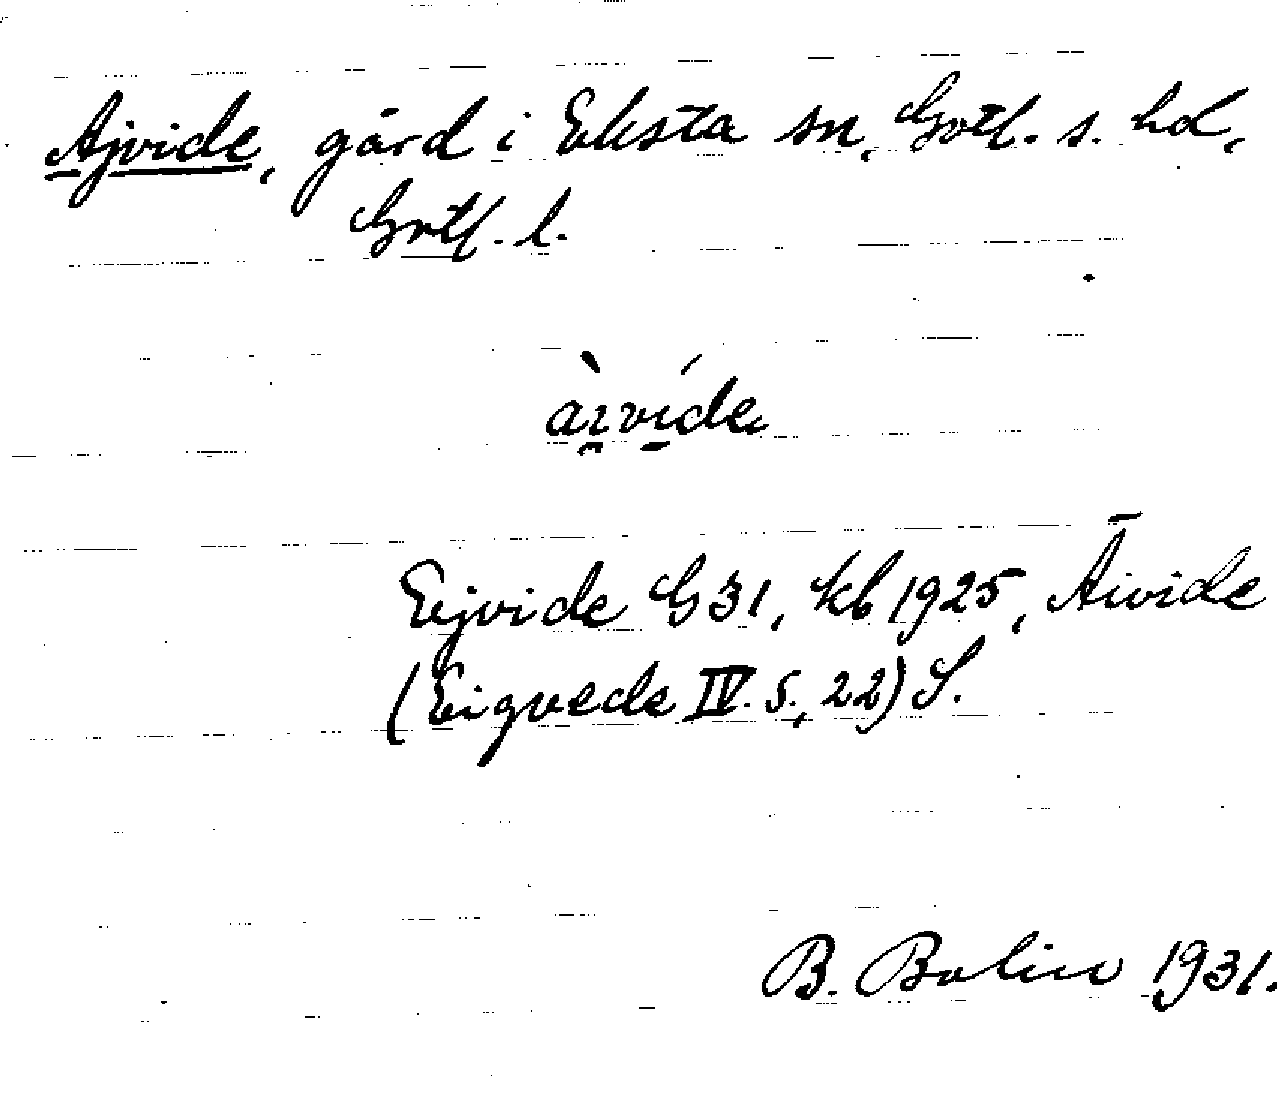 Ajvide, gård i Eksta sn, Gotl. s. hd,
Gotl. l.
àɪ̯ví̠de
Eijvide G 31, kb 1925, Āivide
(Eigvede IV. S., 22) S.
B. Bolin 1931.